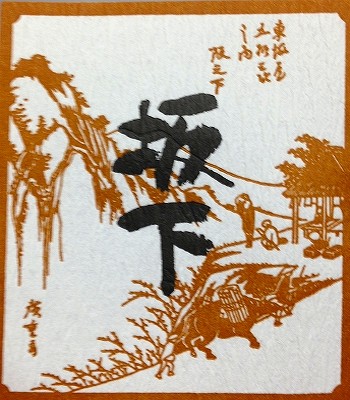 東海道
五拾三次
之内
阪之下
阪下
廣重画